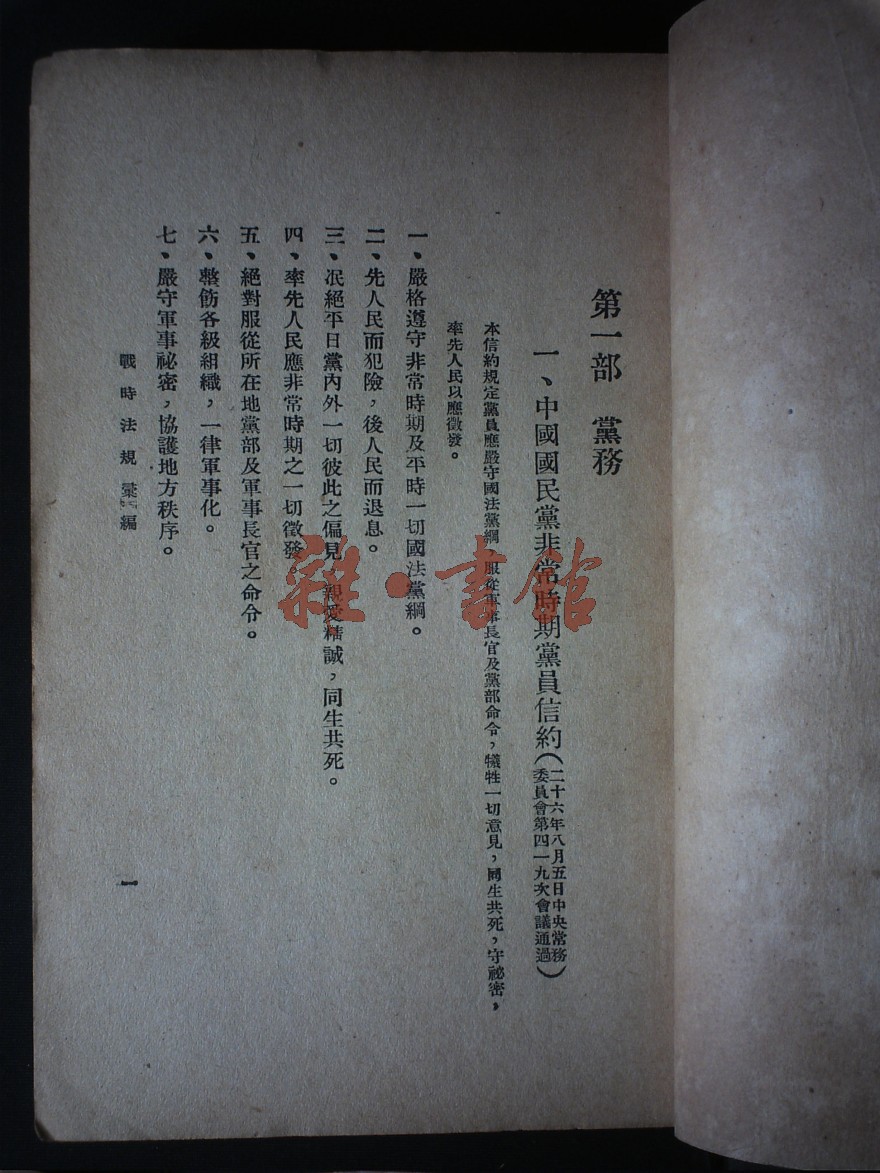 第一部　黨務
一、中國國民黨非常時期黨員信約（二十六年八月五日中央常務
委員會第四一九次會議通過）
本信約規定黨員應嚴守國法黨綱，服從軍事長官及黨部命令，犧牲一切意見，同生共死，守祕密，
率先人民以應徵發。
一、嚴格遵守非常時期及平時一切國法黨綱。
二、先人民而犯險，後人民而退息。
三、泯絕平日黨內外一切彼此之偏見，親愛精誠，同生共死。
四、率先人民應非常時期之一切徵發。
五、絕對服從所在地黨部及軍事長官之命令。
六、整飭各級組織，一律軍事化。
七、嚴守軍事祕密，協護地方秩序。
戰時法規彙編
一
雜·書館